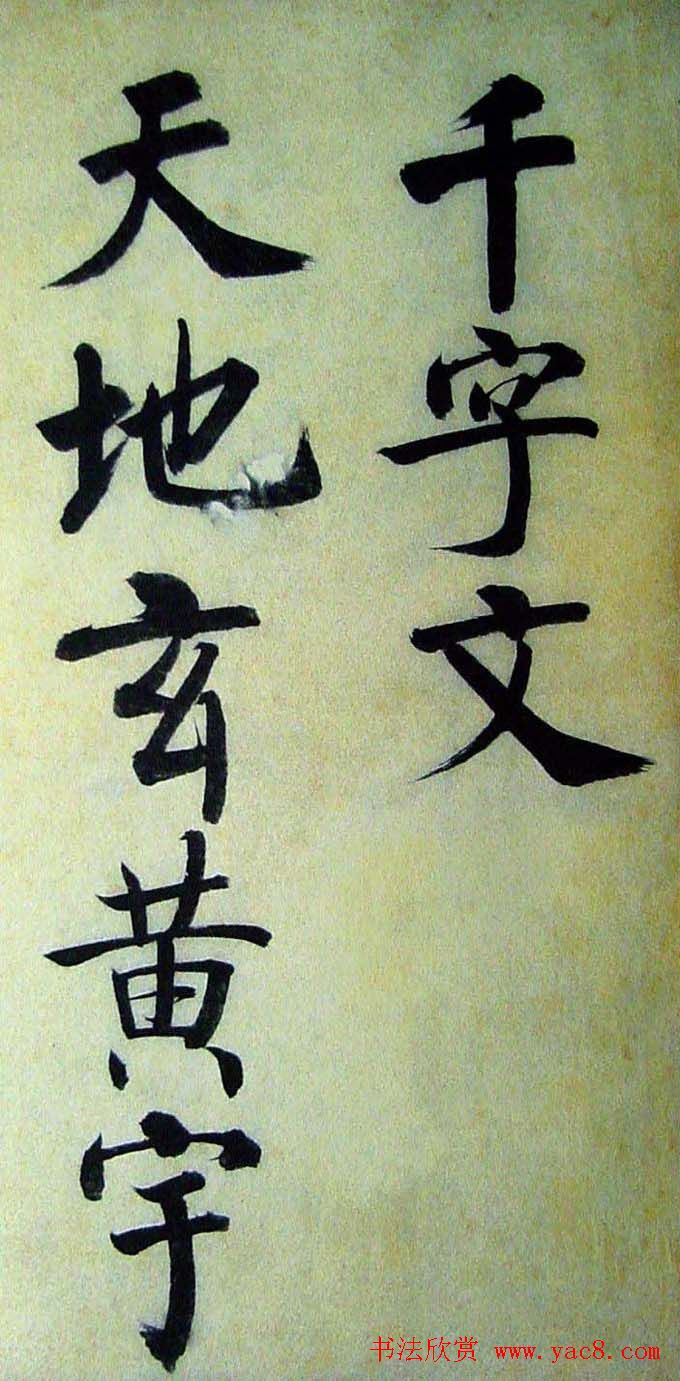 千字文
天地玄黄宇
书法欣赏 www.yac8.com